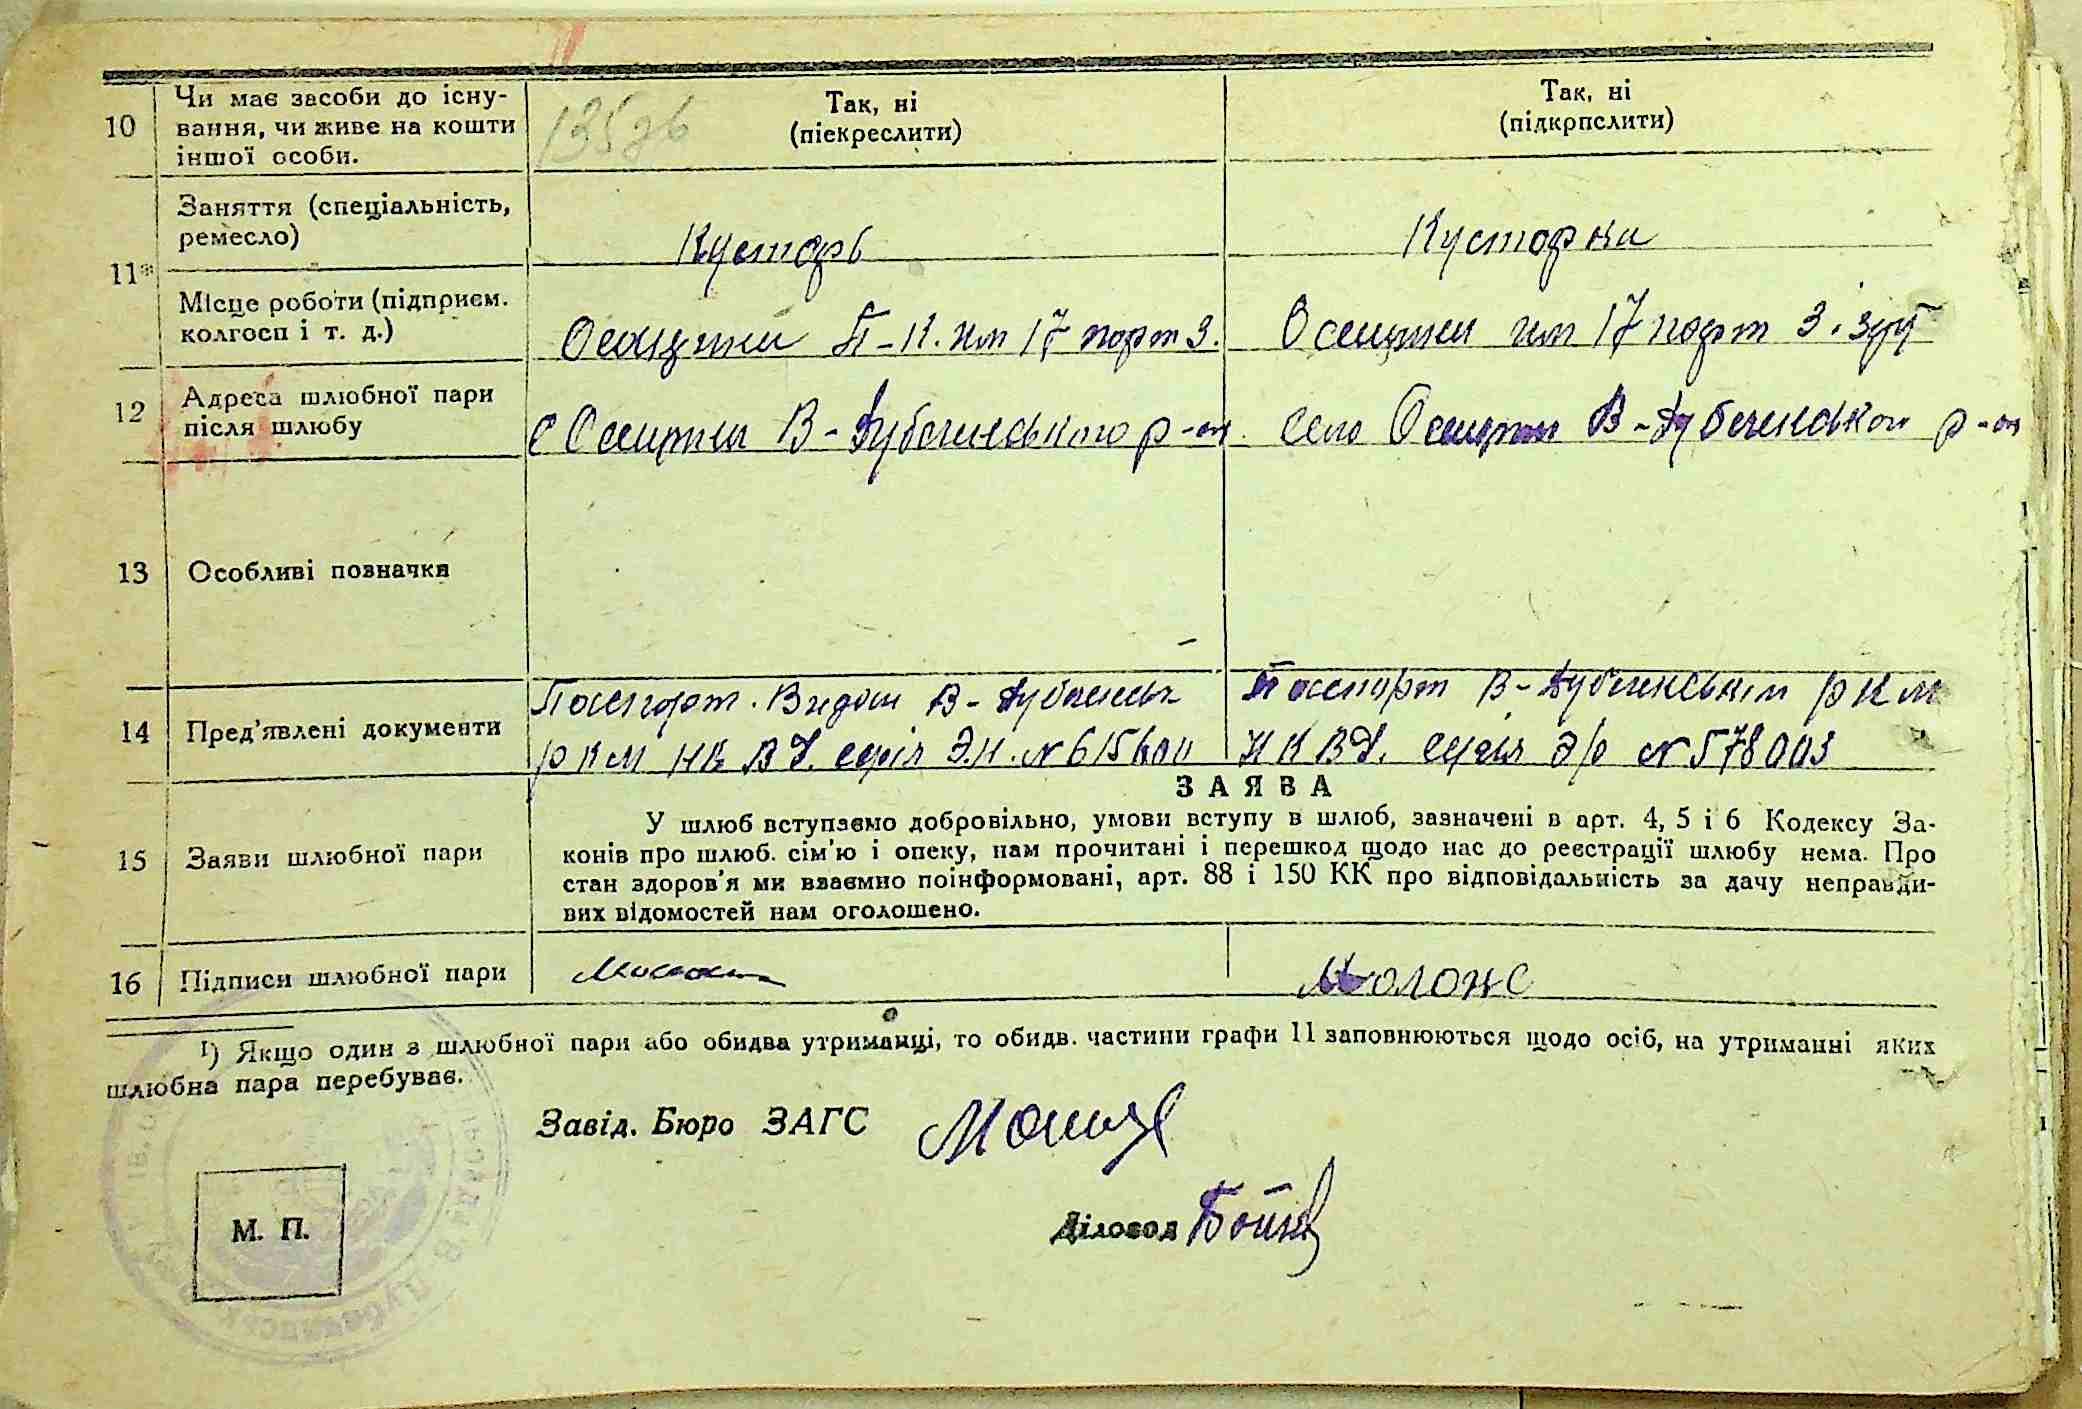 135 зв
10 Чи має засоби до існу-
вання, чи живе на кошти
іншої особи.
Так, ні
(піекреслити)
Так, ні
(підкрпслити)
11* Заняття (спеціальність,
ремесло)
Кусторь
Кусторка
Місце роботи (підприєм.
колгосп і т. д.)
П-К. им 17 порт З.
им 17 порт З.
12 Адреса шлюбної пари
після шлюбу
с Осещини В-Дубеченського р-он
село Осещини В-Дубеченськог р-он
13 Особливі позначки
14 Пред'явлені документи
Паспорт. Видан В-Дубеченськ
РКМ НКВД. серія Э.Н. №
Паспорт В-Дубеченським РКМ
НКВД. серія № 578003
З А Я В А
15 Заяви шлюбної пари
У шлюб вступаємо добровільно, умови вступу в шлюб, зазначені в арт. 4, 5 і 6 Кодексу За-
конів про шлюб. сім'ю і опеку, нам прочитані і перешкод щодо нас до реєстрації шлюбу нема. Про
стан здоров'я ми взаємно поінформовані, арт. 88 і 150 КК про відповідальність за дачу неправди-
вих відомостей нам оголошено.
16 Підписи шлюбної пари
1) Якщо один з шлюбної пари або обидва утриманці, то обидв. частини графи 11 заповнюються щодо осіб, на утриманні яких
шлюбна пара перебуває.
Завід. Бюро ЗАГС
Діловод
М. П.